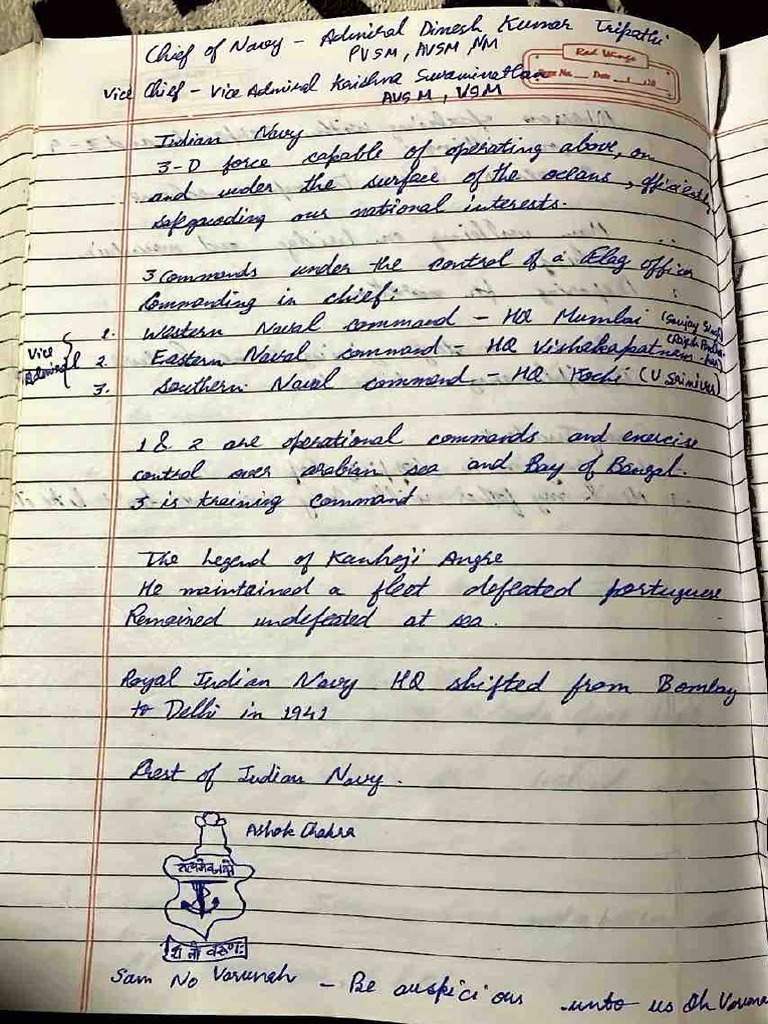 Chief of Navy - Admiral Dinesh Kumar Tripathi
PVSM, AVSM, NM
Red Wings
Page No. Date
Vice Chief - Vice Admiral Krishna Swaminathan
AVSM, VSM
Indian Navy
3-D force capable of operating above, on
and under the surface of the oceans, efficiently
safeguading our national interests.
3 commands under the control of a Flag officer
Commanding in chief:
1. Western Naval command - HQ Mumbai (Sanjay
Vice Admiral
2. Eastern Naval command - HQ Vishakapatnam
3. Southern Naval command - HQ Kochi (V Srinivas)
1 & 2 are operational commands and exercise
control over arabian sea and Bay of Bangal.
3 is training command
The Legend of Kanhoji Angre
He maintained a fleet defeated portuguese
Remained undefeated at sea.
Royal Indian Navy HQ shifted from Bombay
to Delhi in 1941
Crest of Indian Navy.
Ashok Chakra
सत्यमेव जयते
शं नो वरुणः
Sam No Varunah - Be auspicious unto us Oh Varuna